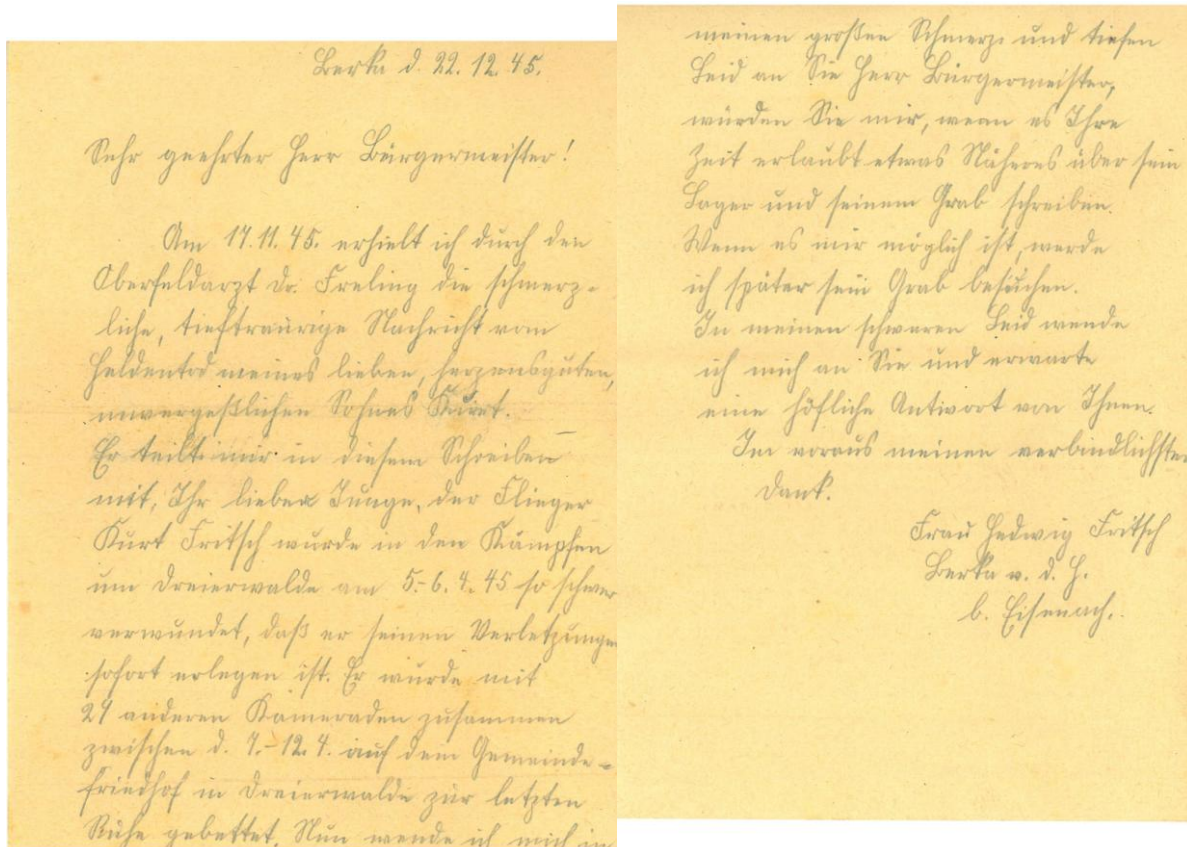 Berka d. 22.12.45.
Sehr geehrter Herr Bürgermeister!
Am 17.11.45. erhielt ich durch den
Oberfeldarzt Dr. Freling die schmerz-
liche, tieftraurige Nachricht vom
Heldentod meines lieben, herzensguten,
unvergeßlichen Sohnes Kurt.
Er teilt mir in diesem Schreiben
mit, Ihr lieber Junge, der Flieger
Kurt Fritsch wurde in den Kämpfen
um Dreierwalde am 5.-6.4.45 so schwer
verwundet, daß er seinen Verletzungen
sofort erlegen ist. Er wurde mit
24 anderen Kameraden zusammen
zwischen d. 7.-12.4. auf dem Gemeinde-
friedhof in Dreierwalde zur letzten
Ruhe gebettet. Nun wende ich mich in
meinen großen Schmerz und tiefen
Leid an Sie Herr Bürgermeister,
würden Sie mir, wenn es Ihre
Zeit erlaubt etwas Näheres über sein
Lager und seinem Grab schreiben.
Wenn es mir möglich ist, werde
ich später sein Grab besuchen.
In meinen schweren Leid wende
ich mich an Sie und erwarte
eine höfliche Antwort von Ihnen.
Im voraus meinen verbindlichsten
Dank.
Frau Hedwig Fritsch
Berka v. d. H.
b. Eisenach.